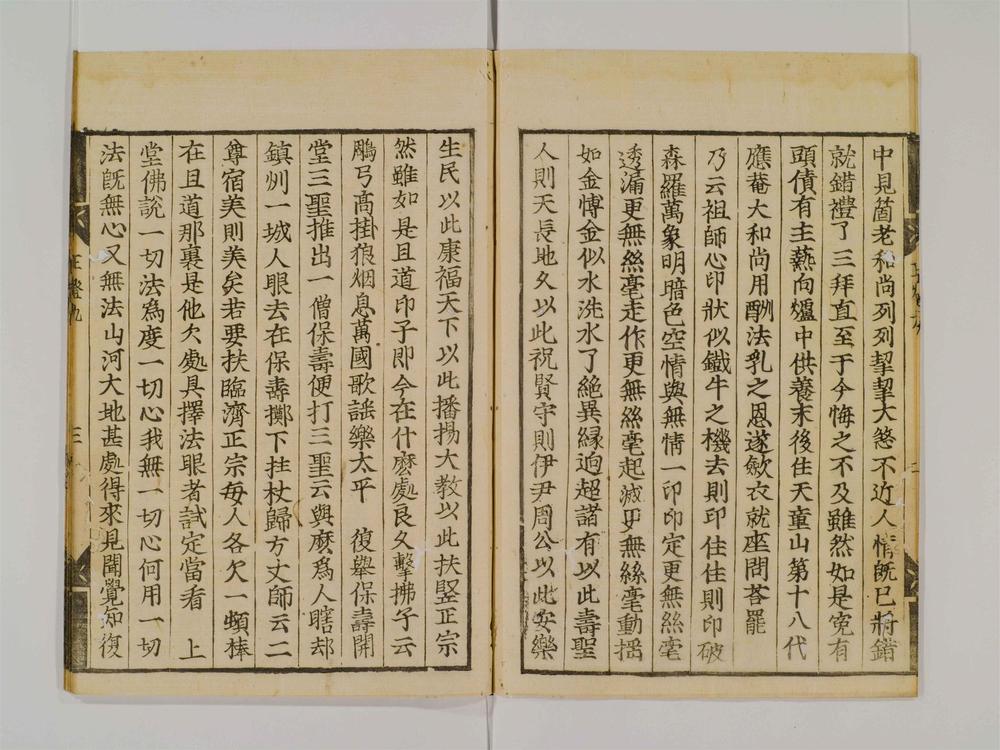 中見箇老和尚列列挈挈大煞不近人情旣已將錯
就錯禮了三拜直至于今悔之不及雖然如是寃有
頭債有主爇向爐中供養末後住天童山第十八代
應菴大和尚用酬法乳之恩遂斂衣就座問荅罷
乃云祖師心印狀似鐵牛之機去則印住住則印破
森羅萬象明暗色空情與無情一印印定更無絲毫
透漏更無絲毫走作更無絲毫起滅更無絲毫動揺
如金愽金似水洗水了絶異縁逈超諸有以此壽聖
人則天長地久以此祝賢守則伊尹周公以此安樂
生民以此康福天下以此播揚大教以此扶竪正宗
然雖如是且道印子即今在什麽處良久擊拂子云
鵰弓高掛狼烟息萬國歌謡樂太平 復舉保壽開
堂三聖推出一僧保壽便打三聖云與麽爲人瞎却
鎮州一城人眼去在保壽擲下拄杖歸方丈師云二
尊宿美則美矣若要扶臨濟正宗每人各欠一頓棒
在且道那裏是他欠處具擇法眼者試定當看 上
堂佛說一切法爲度一切心我無一切心何用一切
法旣無心又無法山河大地甚處得來見聞覺知復